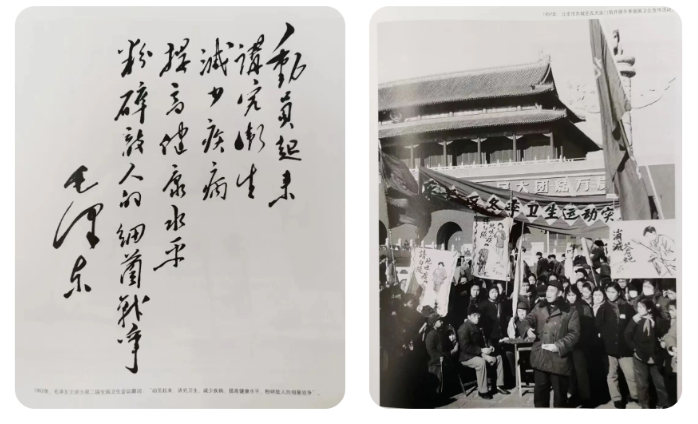 動員起来
講究衛生
減少疾病
提高健康水平
粉碎敵人的細菌戰爭
毛澤东
1952年，毛泽东主席为第二届全国卫生会议题词：“动员起来，讲究卫生，减少疾病，提高健康水平，粉碎敌人的细菌战争”。
民大团结万
冬季卫生运动
消灭